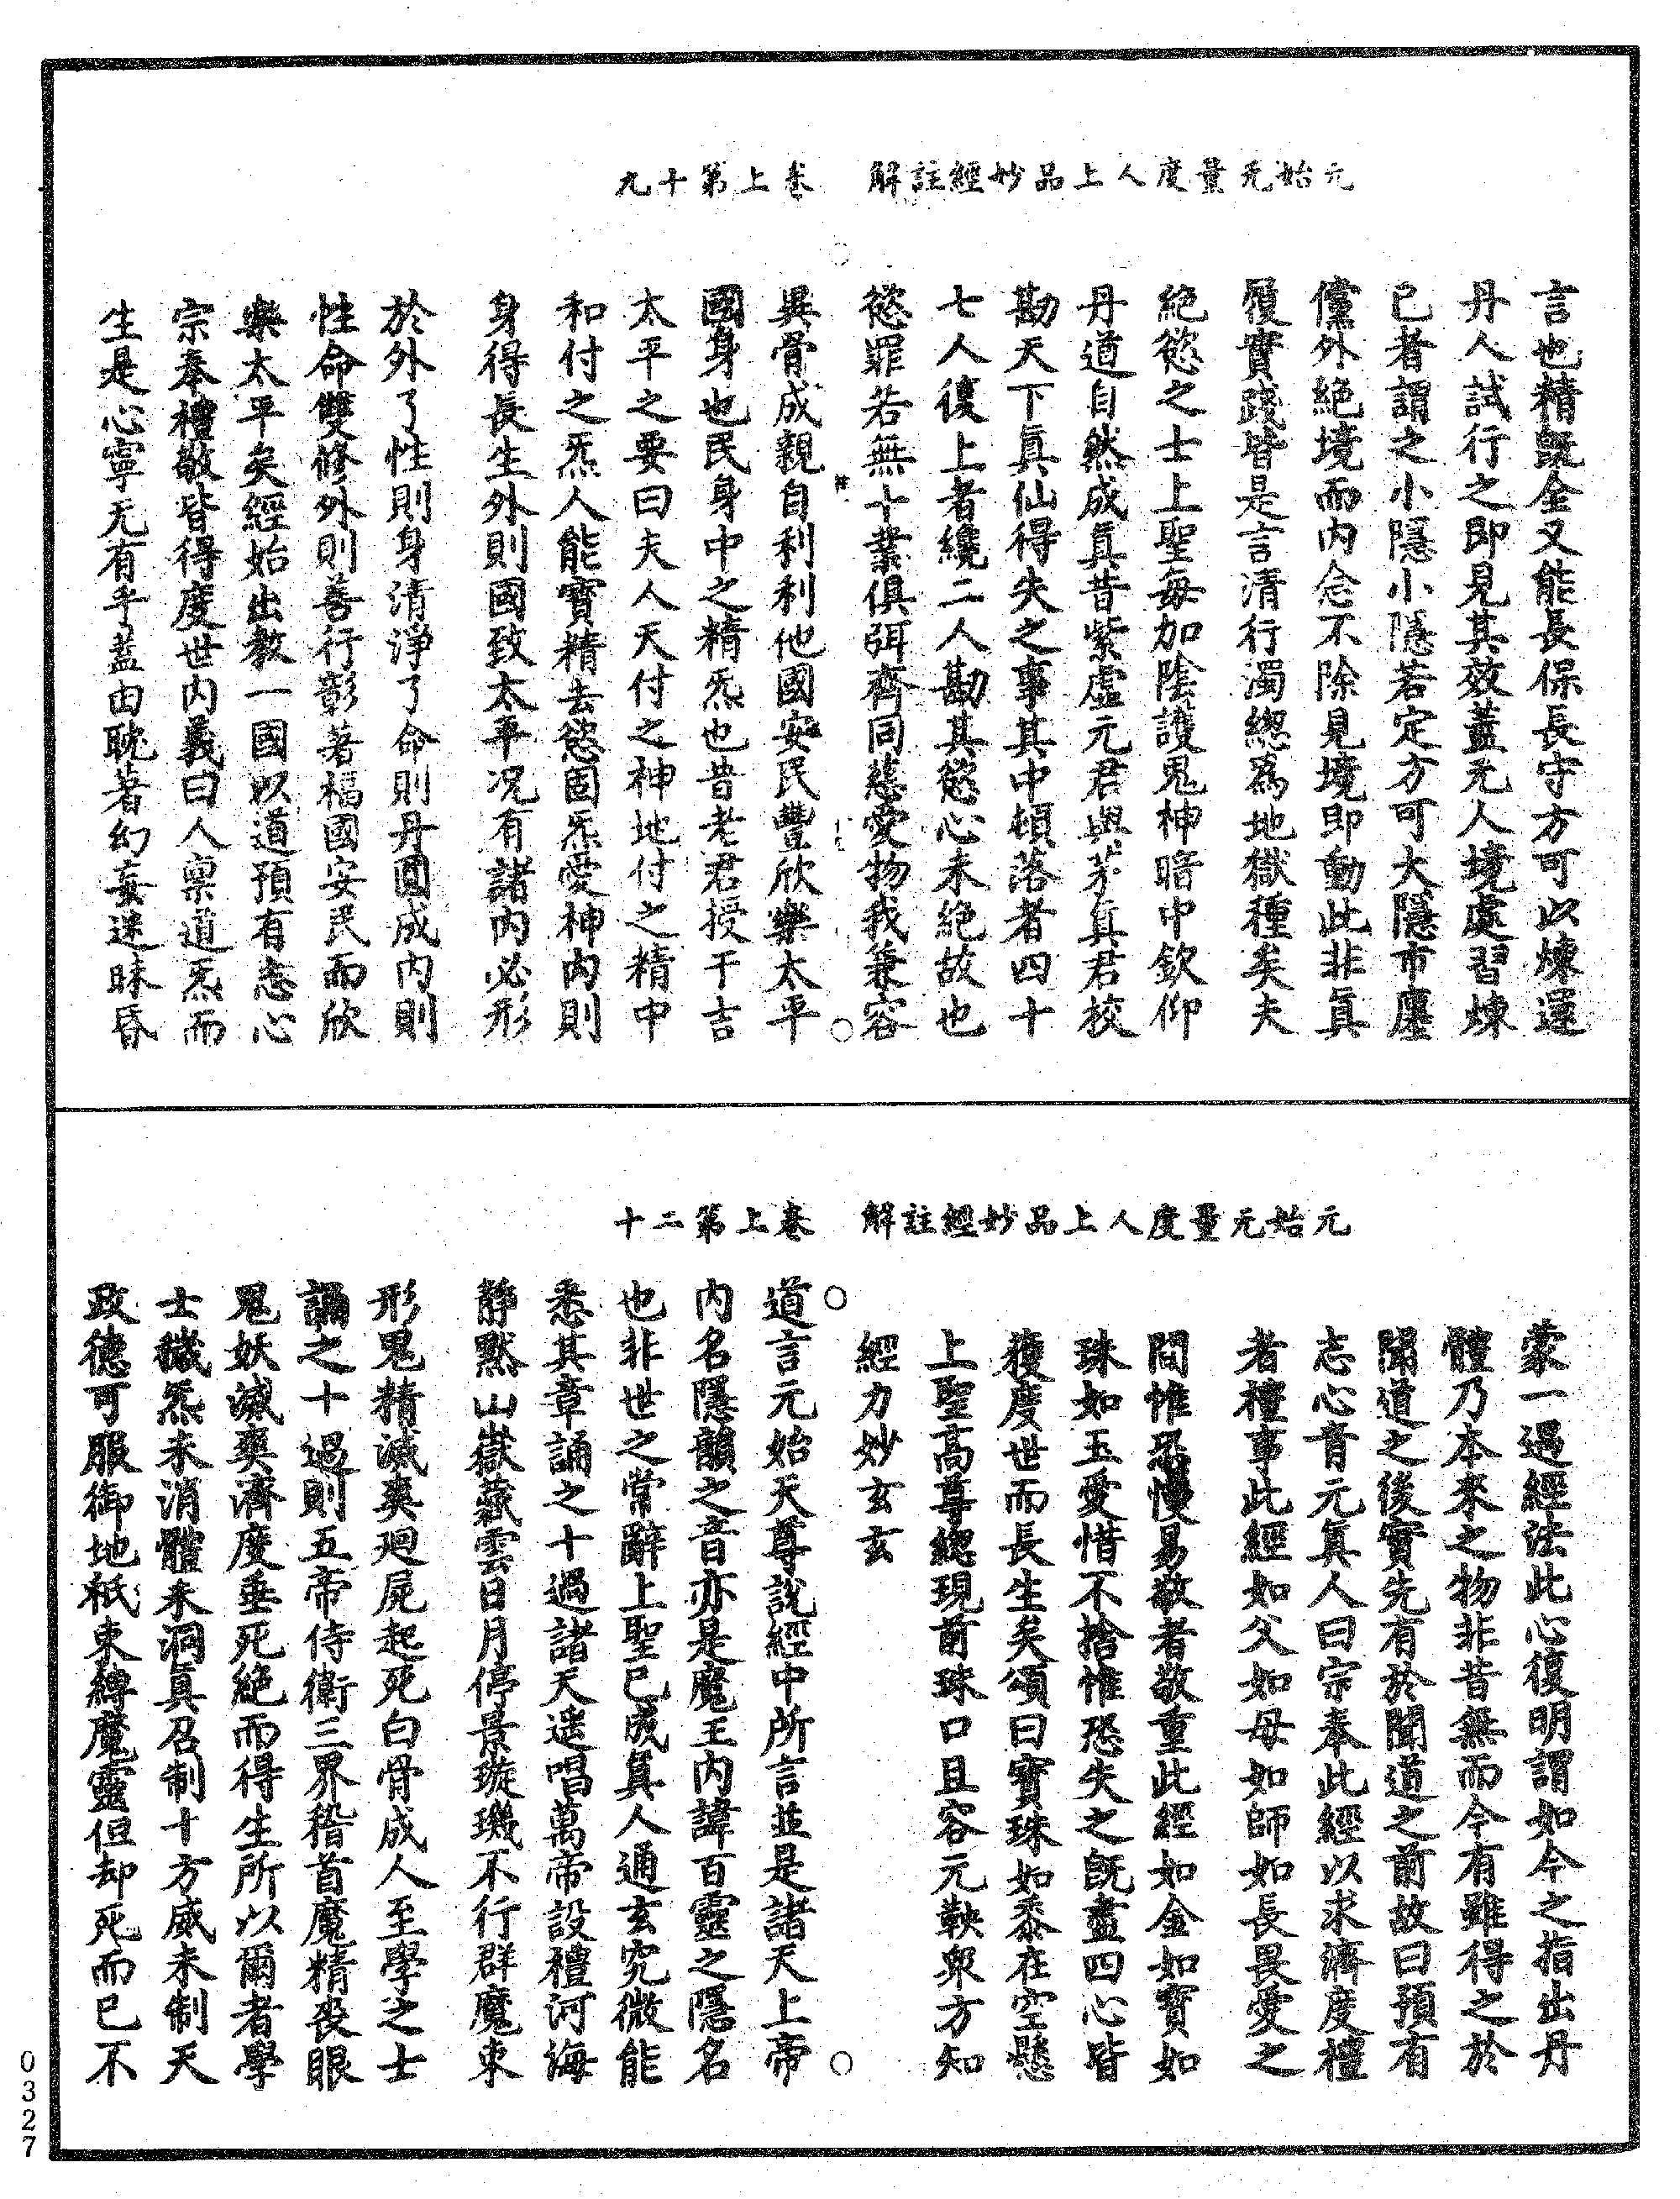 元始无量度人上品妙經註解　卷上第十九
言也精既全又能長保長守方可以煉還
丹人試行之即見其效蓋无人境處習煉
已者謂之小隱小隱若定方可大隱市廛
儻外絕境而內念不除見境即動此非真
履實踐皆是言清行濁總為地獄種矣夫
絕慾之士上聖每加陰護鬼神暗中欽仰
丹道自然成真昔紫虛元君與茅真君校
勘天下真仙得失之事其中頓落者四十
七人復上者纔二人勘其慾心未絕故也
慾罪若無十業俱弭齊同慈愛物我兼容
異骨成親自利利他國安民豐欣樂太平
國身也民身中之精炁也昔老君授干吉
太平之要曰夫人天付之神地付之精中
和付之炁人能寶精去慾固炁愛神內則
身得長生外則國致太平況有諸內必形
於外了性則身清淨了命則丹圓成內則
性命雙修外則善行彰著福國安民而欣
樂太平矣經始出教一國以道預有志心
宗奉禮敬皆得度世內義曰人禀道炁而
生是心寧无有乎蓋由耽著幻妄迷昧昏
元始无量度人上品妙經註解　卷上第二十
蒙一遇經法此心復明謂如今之指出丹
體乃本來之物非昔無而今有雖得之於
聞道之後實先有於聞道之前故曰預有
志心青元真人曰宗奉此經以求濟度禮
者禮事此經如父如母如師如長畏愛之
間惟恐慢易敬者敬重此經如金如寶如
珠如玉愛惜不捨惟恐失之既盡四心皆
獲度世而長生矣頌曰寶珠如黍在空懸
上聖高尊總現前珠口且容元鞅衆方知
經力妙玄玄
道言元始天尊說經中所言並是諸天上帝
內名隱韻之音亦是魔王內諱百靈之隱名
也非世之常辭上聖已成真人通玄究微能
悉其章誦之十過諸天遙唱萬帝設禮河海
靜默山嶽藏雲日月停景璇璣不行群魔束
形鬼精滅爽廻屍起死白骨成人至學之士
誦之十過則五帝侍衛三界稽首魔精喪眼
鬼妖滅爽濟度垂死絕而得生所以爾者學
士穢炁未消體未洞真召制十方威未制天
政德可服御地祇束縛魔靈但却死而已不
0327